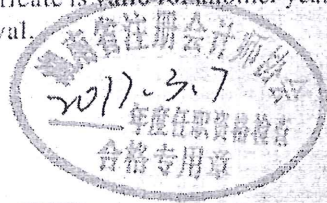 ificate is valid for another year
val.
湖南省注册会计师协会
2017.3.7
年度任职资格检查
合格专用章